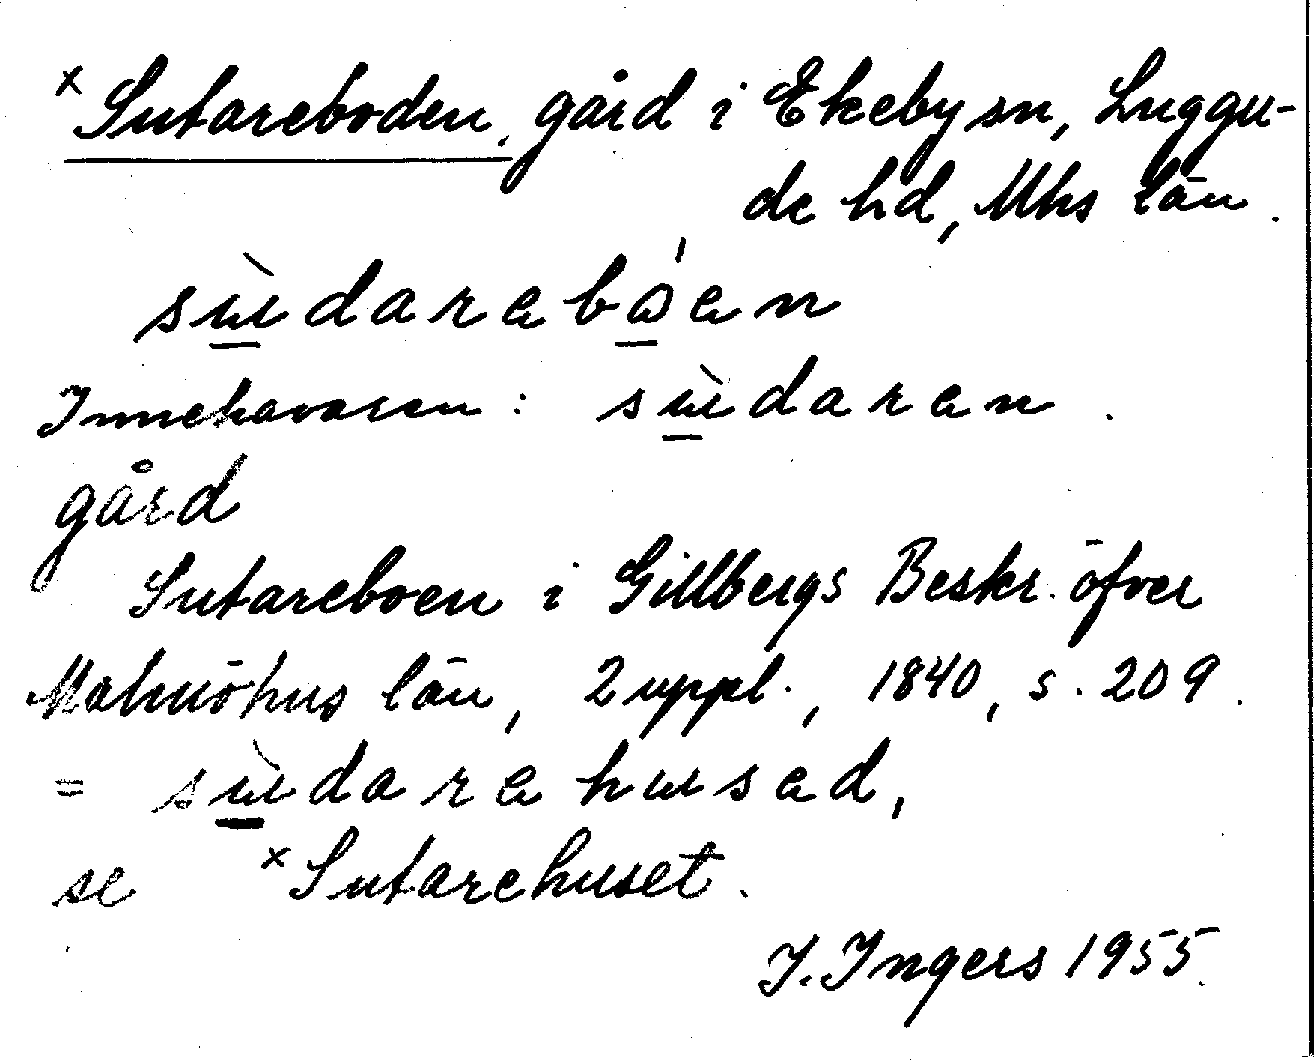 x Sutareboden, gård i Ekeby sn, Luggu-
de hd, Mhs län.
sùdarebåen
Innehavaren: sùdaren.
gård
Sutareboen i Gillbergs Beskr. öfver
Malmöhus län, 2 uppl., 1840, s. 209.
= sùdarehused,
se x Sutarehuset.
I. Ingers 1955.